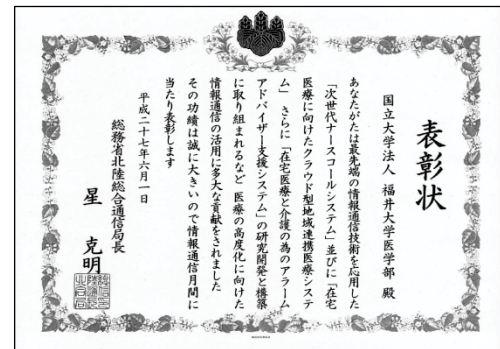 表彰状
国立大学法人 福井大学医学部 殿
あなたがたは最先端の情報通信技術を応用した
「次世代ナースコールシステム」並びに「在宅
医療に向けたクラウド型地域連携医療システ
ム」 さらに「在宅医療と介護の為のアラーム
アドバイザー支援システム」の研究開発と構築
に取り組まれるなど 医療の高度化に向けた
情報通信の活用に多大な貢献をされました
その功績は誠に大きいので情報通信月間に
当たり表彰します
平成二十七年六月一日
総務省北陸総合通信局長
星 克明